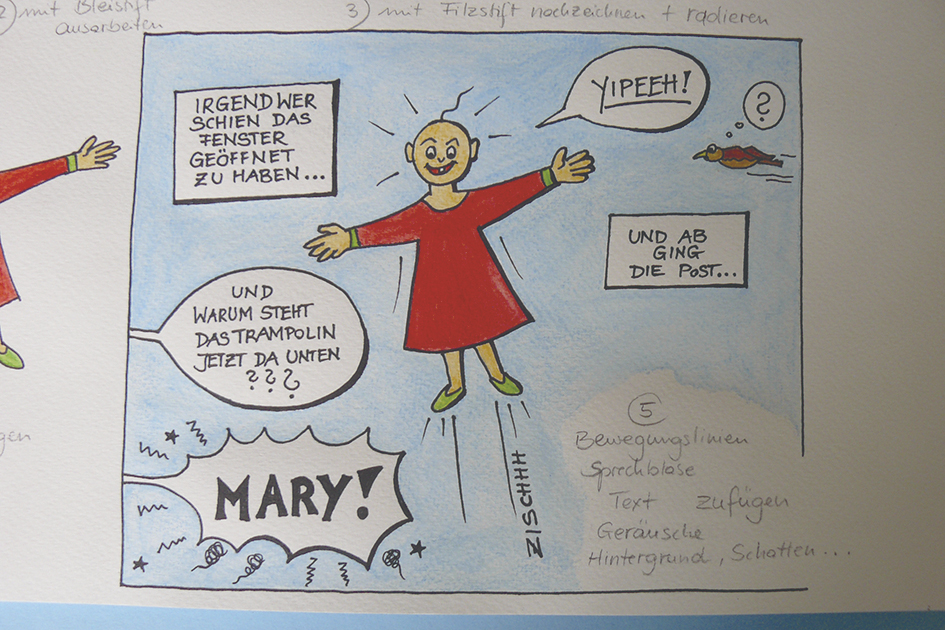 2) mit Bleistift
ausarbeiten
3) mit Filzstift nachzeichnen + radieren
IRGENDWER
SCHIEN DAS
FENSTER
GEÖFFNET
ZU HABEN...
YIPEEH!
?
UND AB
GING
DIE POST...
UND
WARUM STEHT
DAS TRAMPOLIN
JETZT DA UNTEN
???
MARY!
ZISCHHH
5
Bewegungslinien
Sprechblase
Text zufügen
Geräusche
Hintergrund, Schatten...